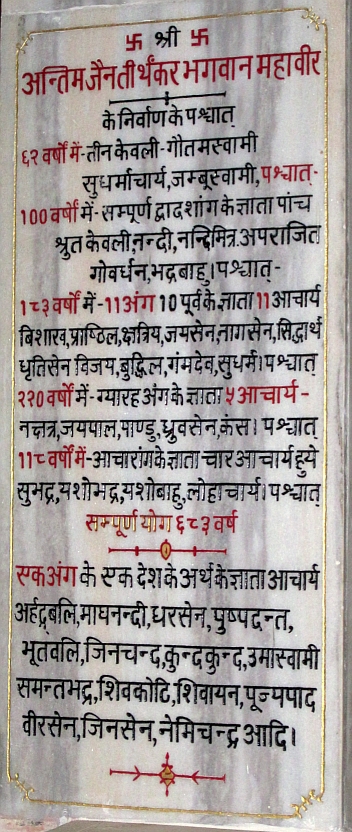 卐 श्री 卐
अन्तिम जैन तीर्थंकर भगवान महावीर
के निर्वाण के पश्चात्
६२ वर्षों में - तीन केवली - गौतमस्वामी
सुधर्माचार्य, जम्बूस्वामी, पश्चात् -
100 वर्षों में - सम्पूर्ण द्वादशांग के ज्ञाता पांच
श्रुत केवली, नन्दी, नन्दिमित्र अपराजित
गोवर्धन, भद्रबाहु। पश्चात् -
1८३ वर्षों में - 11 अंग 10 पूर्व के ज्ञाता 11 आचार्य
बिशाख, प्राष्ठिल, क्षत्रिय, जयसेन, नागसेन, सिद्धार्थ
धृतिसेन विजय, बुद्धिल, गंमदेव, सुधर्म। पश्चात्
२२0 वर्षों में - ग्यारह अंग के ज्ञाता ५ आचार्य -
नक्षत्र, जयपाल, पाण्डु, ध्रुवसेन, कंस। पश्चात्
11८ वर्षों में - आचारांग के ज्ञाता चार आचार्य हुये
सुभद्र, यशोभद्र, यशोबाहु, लोहाचार्य। पश्चात्
सम्पूर्ण योग ६८३ वर्ष
एक अंग के एक देश के अर्थ के ज्ञाता आचार्य
अर्हद्बलि, माघनन्दी, धरसेन, पुष्पदन्त,
भूतवलि, जिनचन्द, कुन्दकुन्द, उमास्वामी
समन्तभद्र, शिवकोटि, शिवायन, पूज्यपाद
वीरसेन, जिनसेन, नेमिचन्द्र आदि।